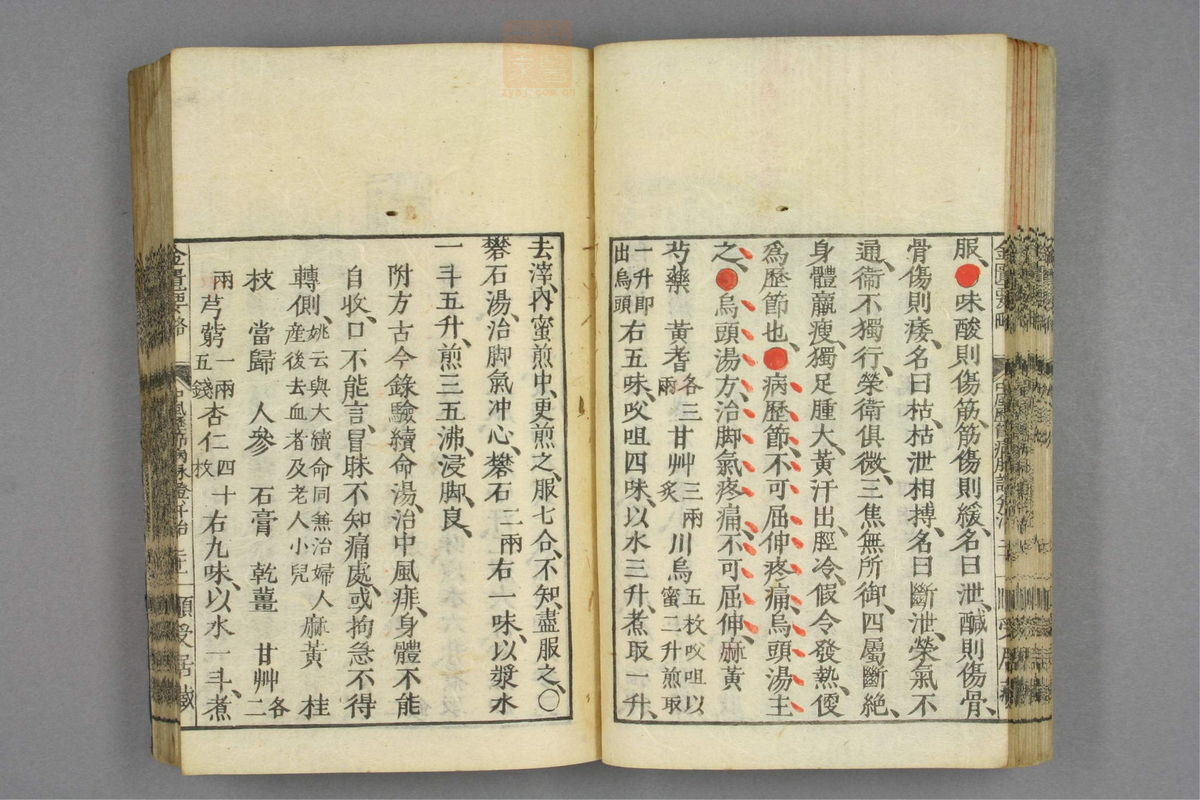 服、●味酸則傷筋、筋傷則緩、名曰泄、鹹則傷骨、
骨傷則痿、名曰枯、枯泄相摶、名曰斷泄、榮氣不
通、衞不獨行、榮衞俱微、三焦無所御、四屬斷絶、
身體羸瘦、獨足腫大、黃汗出、脛冷、假令發熱、便
爲歷節也、●病歷節、不可屈伸疼痛、烏頭湯主
之、●烏頭湯方、治脚氣疼痛、不可屈伸、麻黃
芍藥 黃耆各三兩 甘艸三兩炙 川烏五枚㕮咀以蜜二升煎取
一升即出烏頭 右五味、㕮咀四味、以水三升、煮取一升、
去滓、內蜜煎中、更煎之、服七合、不知、盡服之、○
礬石湯、治脚氣冲心、礬石二兩 右一味、以漿水
一斗五升、煎三五沸、浸脚良、
附方古今錄驗續命湯、治中風痱、身體不能
自收、口不能言、冒昧不知痛處、或拘急不得
轉側、姚云與大續命同兼治婦人產後去血者及老人小兒 麻黃 桂
枝 當歸 人參 石膏 乾薑 甘艸各二
兩 芎藭一兩五錢 杏仁四十枚 右九味、以水一斗、煮
金匱要略 中風歷節病脉證并治